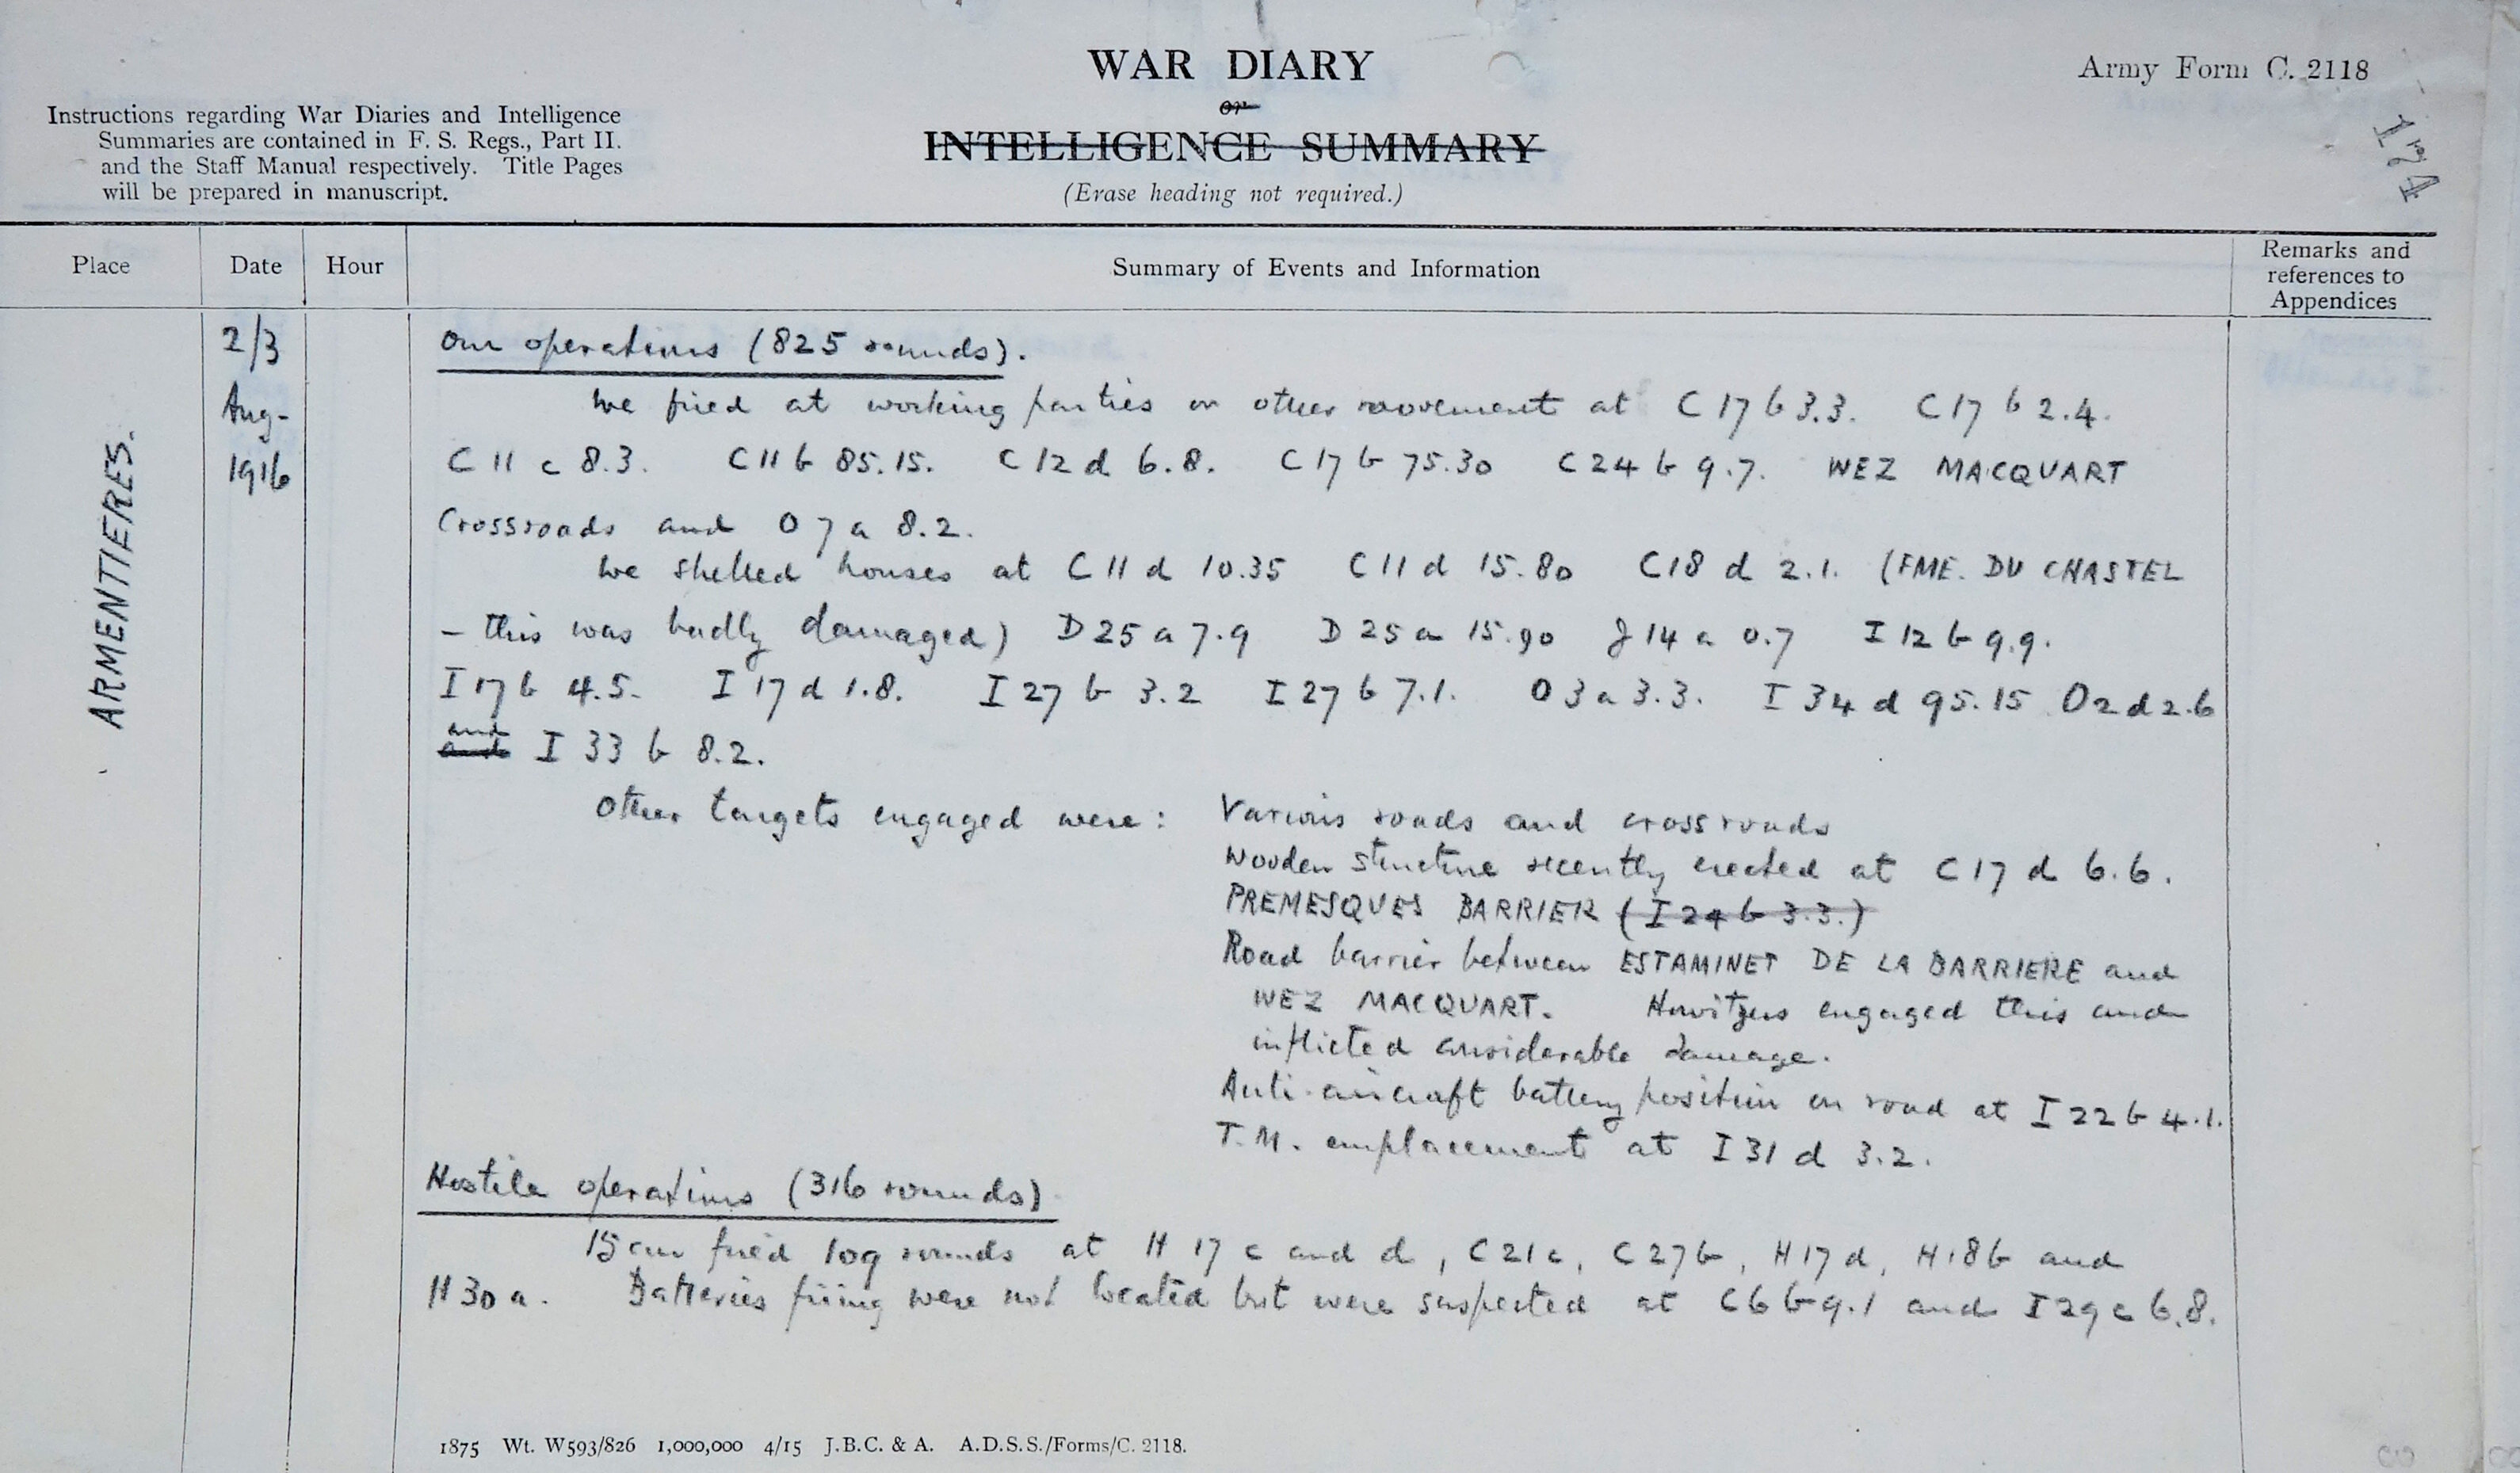 WAR DIARY
Army Form C. 2118
or
INTELLIGENCE SUMMARY
(Erase heading not required.)
Instructions regarding War Diaries and Intelligence
Summaries are contained in F. S. Regs., Part II.
and the Staff Manual respectively. Title Pages
will be prepared in manuscript.
174
Place
Date
Hour
Summary of Events and Information
Remarks and
references to
Appendices
ARMENTIERES.
2/3
Aug-
1916
Our operations (825 rounds).
We fired at working parties or other movement at C 17 b 3.3. C 17 b 2.4.
C 11 c 8.3. C 11 b 85.15. C 12 d 6.8. C 17 b 75.30 C 24 b 9.7. WEZ MACQUART
Crossroads and O 7 a 8.2.
We shelled houses at C 11 d 10.35 C 11 d 15.80 C 18 d 2.1. (FME. DU CHASTEL
- this was badly damaged) D 25 a 7.9 D 25 a 15.90 J 14 a 0.7 I 12 b 9.9.
I 17 b 4.5. I 17 d 1.8. I 27 b 3.2 I 27 b 7.1. O 3 a 3.3. I 34 d 95.15 O 2 d 2.6
and I 33 b 8.2.
Other targets engaged were: Various roads and crossroads
Wooden structure recently erected at C 17 d 6.6.
PREMESQUES BARRIER (I 24 b 3.3.)
Road barrier between ESTAMINET DE LA BARRIERE and
WEZ MACQUART. Howitzers engaged this and
inflicted considerable damage.
Anti-aircraft battery position on road at I 22 b 4.1.
T.M. emplacement at I 31 d 3.2.
Hostile operations (316 rounds)
15 cm fired 109 rounds at H 17 c and d, C 21 c, C 27 b, H 17 d, H 18 b and
H 30 a. Batteries firing were not located but were suspected at C 6 b 9.1 and I 29 c 6.8.
1875 Wt. W593/826 1,000,000 4/15 J.B.C. & A. A.D.S.S./Forms/C. 2118.